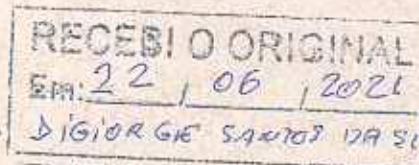 RECEBI O ORIGINAL
Em: 22 / 06 / 2021
DIGIORGE SANTOS DA SI